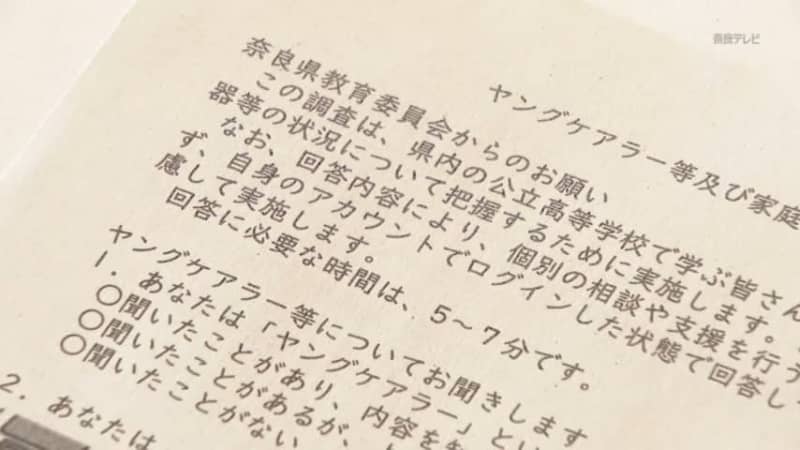 奈良テレビ
ヤングケアラー等及び家庭
奈良県教育委員会からのお願い
この調査は、県内の公立高等学校で学ぶ皆さん
器等の状況について把握するために実施します。
なお、回答内容により、個別の相談や支援を行う
ず、自身のアカウントでログインした状態で回答し
慮して実施します。
回答に必要な時間は、5～7分です。
ヤングケアラー等についてお聞きします
1. あなたは「ヤングケアラー」とい
○聞いたことがあり、内容を
○聞いたことがあるが、
○聞いたことがない
2. あなたは